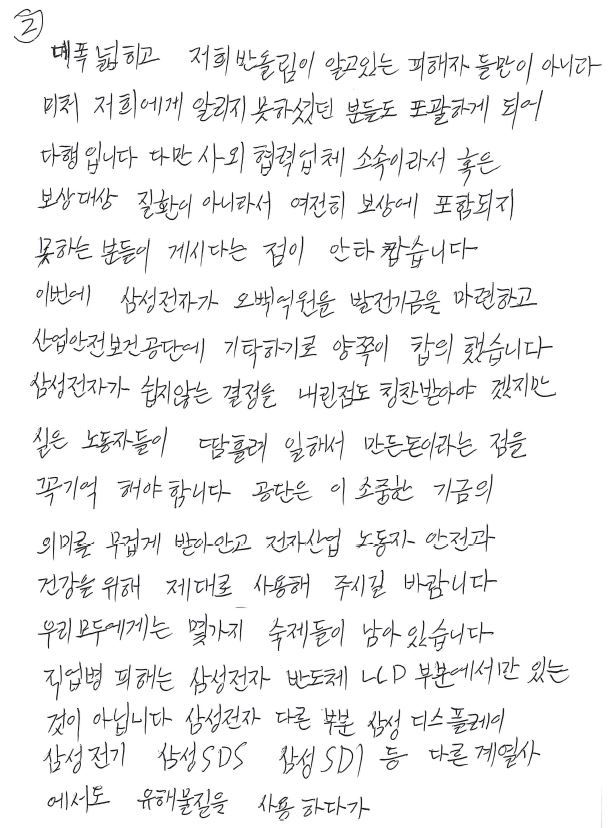 ②
대폭 넓히고 저희 반올림이 알고있는 피해자 들만이 아니다
미처 저희에게 알리지 못하셨던 분들도 포괄하게 되어
다행입니다 다만 사외 협력업체 소속이라서 혹은
보상대상 질환이 아니라서 여전히 보상에 포함되지
못하는 분들이 계시다는 점이 안타 깝습니다
이번에 삼성전자가 오백억원을 발전기금을 마련하고
산업안전보건공단에 기탁하기로 양쪽이 합의 했습니다
삼성전자가 쉽지않은 결정을 내린점도 칭찬받아야 겠지만
실은 노동자들이 땀흘려 일해서 만든돈이라는 점을
꼭기억 해야합니다 공단은 이 소중한 기금의
의미를 무겁게 받아안고 전자산업 노동자 안전과
건강을 위해 제대로 사용해 주시길 바랍니다
우리모두에게는 몇가지 숙제들이 남아있습니다
직업병 피해는 삼성전자 반도체 LCD 부분에서만 있는
것이 아닙니다 삼성전자 다른 부분 삼성 디스플레이
삼성전기 삼성SDS 삼성SDI 등 다른계열사
에서도 유해물질을 사용 하다가